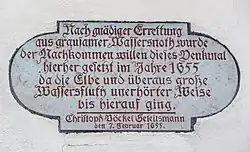 Nach gnädiger Errettung
aus grausamer Wassersnoth wurde
der Nachkommen willen dieses Denkmal
hierher gesetzt im Jahre 1655
da die Elbe und überaus große
Wasserfluth unerhörter Weise
bis hierauf ging.
Christoph Böckel Geleitsmann
den 7. Februar 1655.